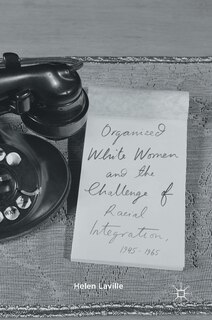 Organized
White Women
and the
Challenge of
Racial
Integration,
1945-1965
Helen Laville